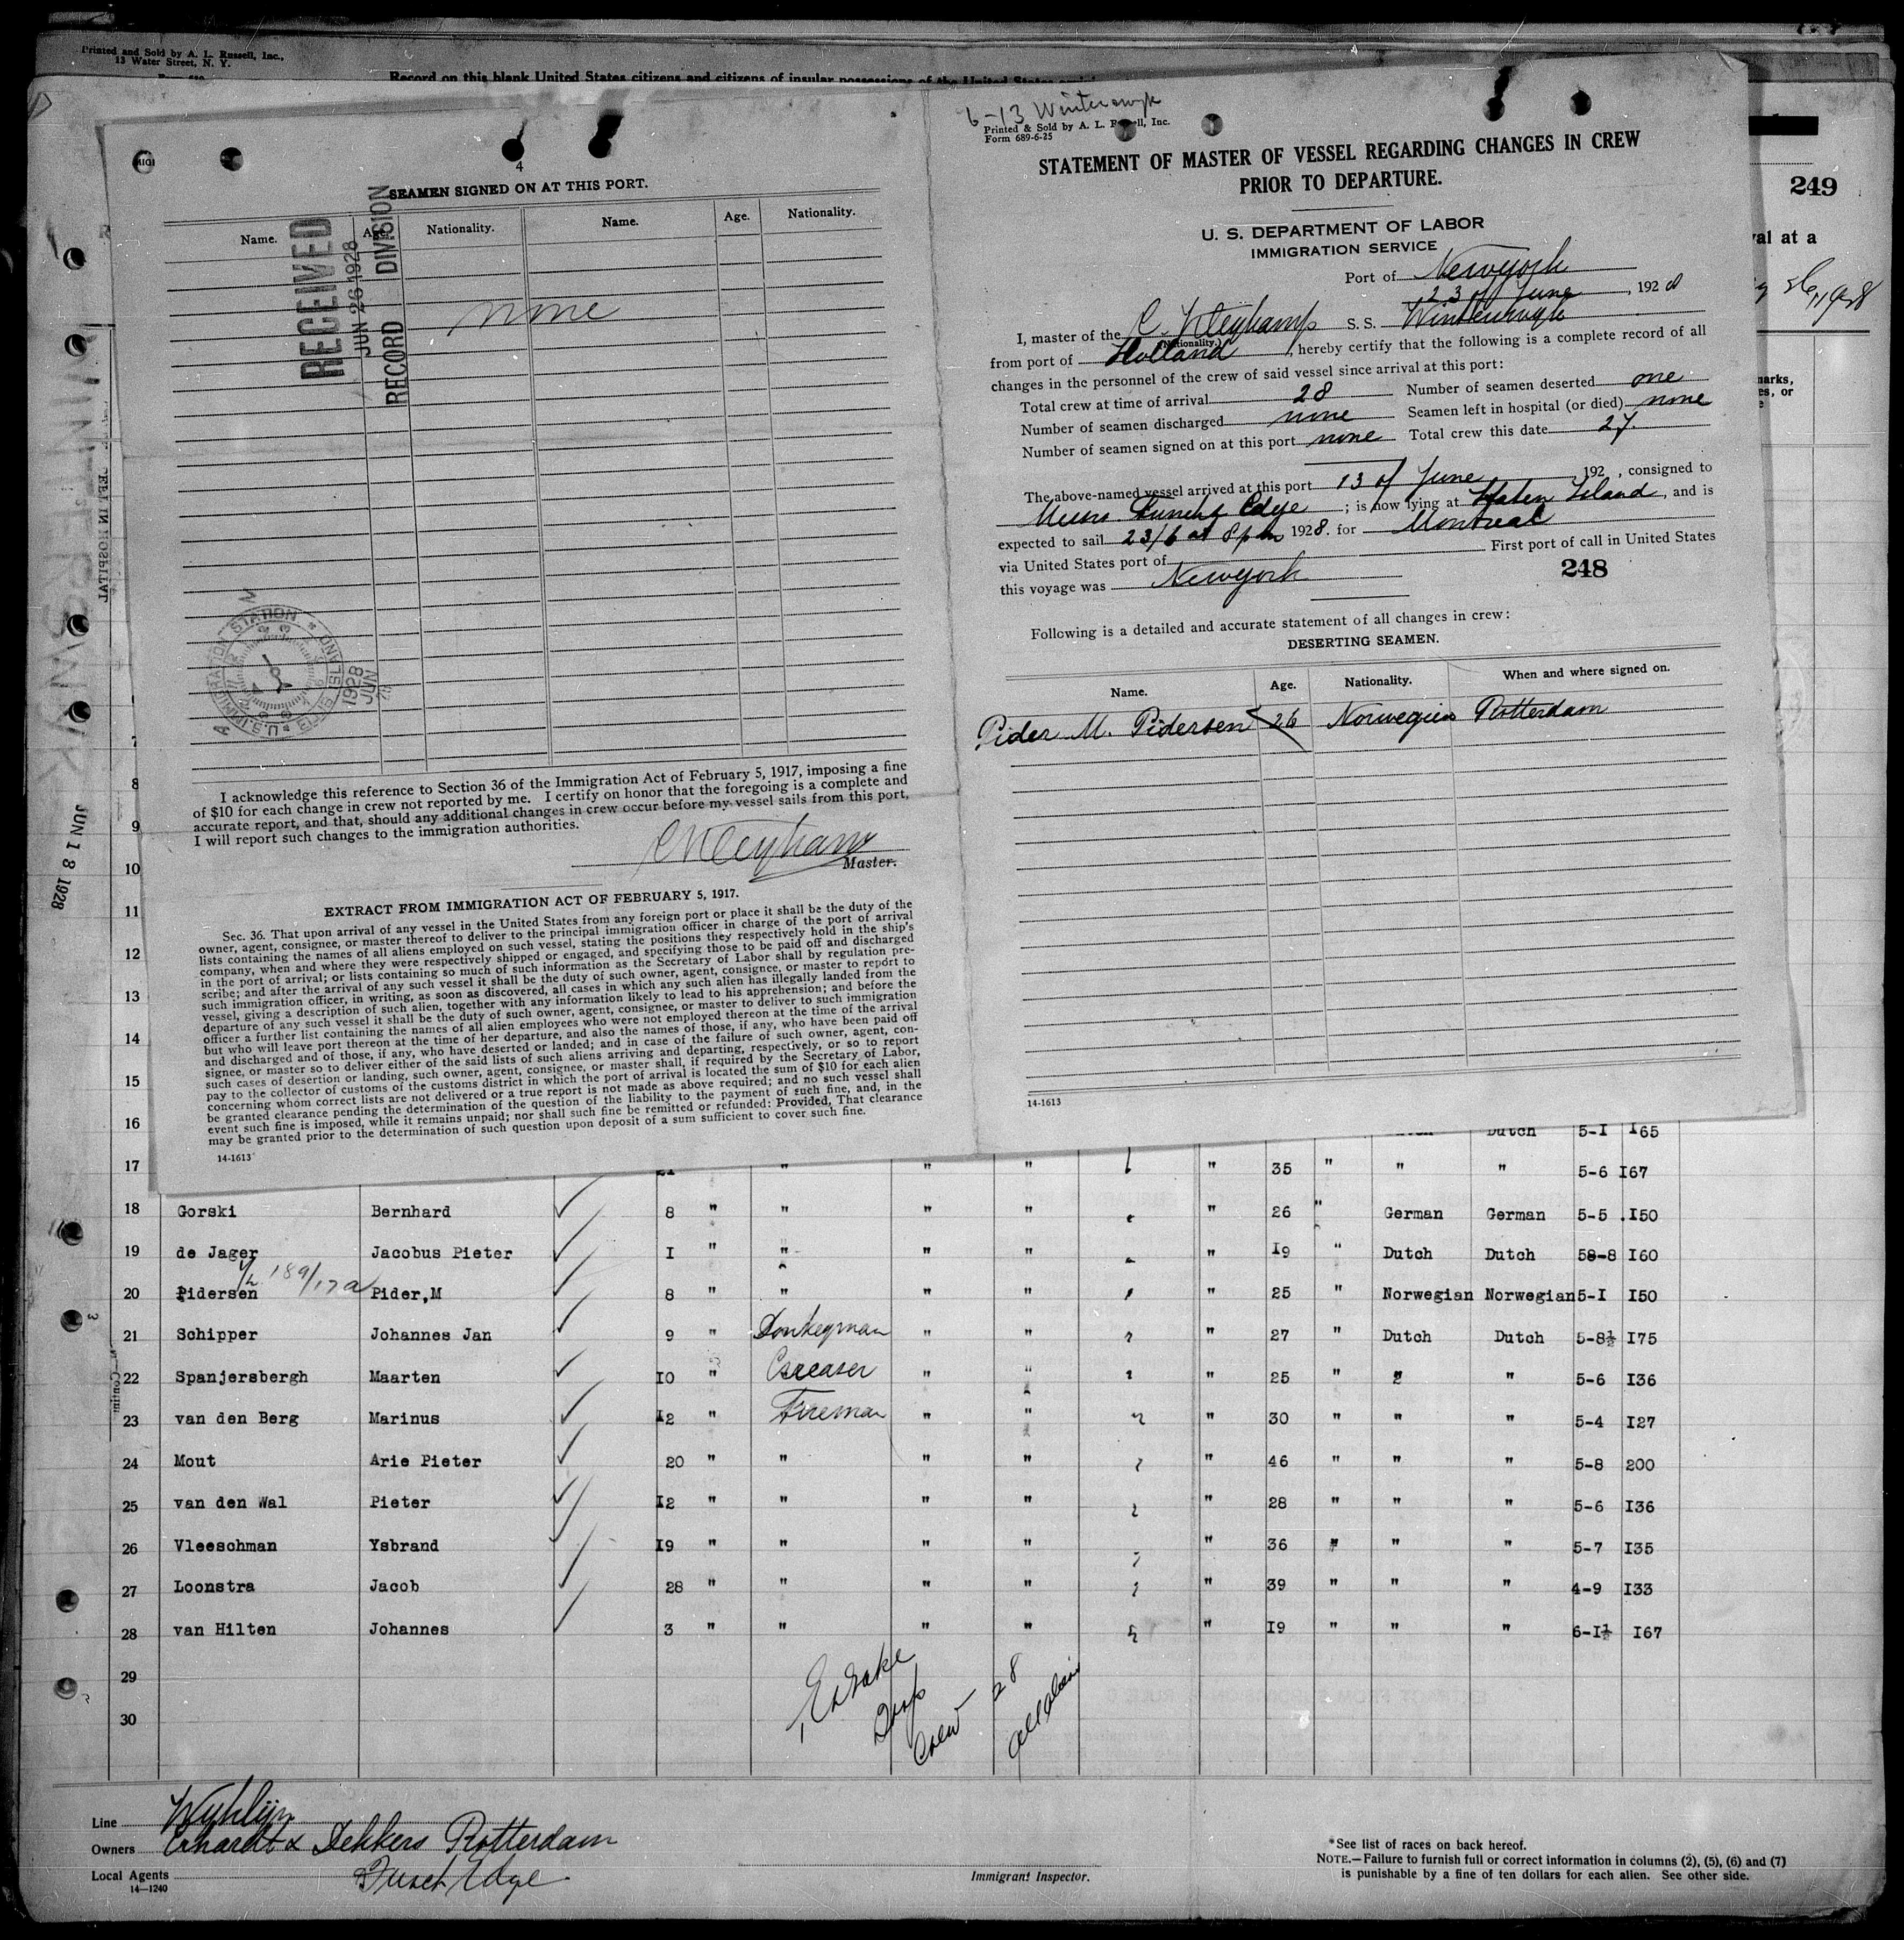 Printed and Sold by A. L. Russell, Inc.,
13 Water Street, N. Y.
Record on this blank United States citizens and citizens of insular possessions of the United States
249
val at a
1928
marks,
es, or
4
SEAMEN SIGNED ON AT THIS PORT.
Name. Age. Nationality. Name. Age. Nationality.
RECEIVED
JUN 26 1928
RECORD DIVISION
none
U.S. IMMIGRATION STATION * ELLIS ISLAND *
1928
JUN
I acknowledge this reference to Section 36 of the Immigration Act of February 5, 1917, imposing a fine
of $10 for each change in crew not reported by me. I certify on honor that the foregoing is a complete and
accurate report, and that, should any additional changes in crew occur before my vessel sails from this port,
I will report such changes to the immigration authorities.
Master.
EXTRACT FROM IMMIGRATION ACT OF FEBRUARY 5, 1917.
Sec. 36. That upon arrival of any vessel in the United States from any foreign port or place it shall be the duty of the
owner, agent, consignee, or master thereof to deliver to the principal immigration officer in charge of the port of arrival
lists containing the names of all aliens employed on such vessel, stating the positions they respectively hold in the ship's
company, when and where they were respectively shipped or engaged, and specifying those to be paid off and discharged
in the port of arrival; or lists containing so much of such information as the Secretary of Labor shall by regulation pre-
scribe; and after the arrival of any such vessel it shall be the duty of such owner, agent, consignee, or master to report to
such immigration officer, in writing, as soon as discovered, all cases in which any such alien has illegally landed from the
vessel, giving a description of such alien, together with any information likely to lead to his apprehension; and before the
departure of any such vessel it shall be the duty of such owner, agent, consignee, or master to deliver to such immigration
officer a further list containing the names of all alien employees who were not employed thereon at the time of the arrival
but who will leave port thereon at the time of her departure, and also the names of those, if any, who have been paid off
and discharged and of those, if any, who have deserted or landed; and in case of the failure of such owner, agent, con-
signee, or master so to deliver either of the said lists of such aliens arriving and departing, respectively, or so to report
such cases of desertion or landing, such owner, agent, consignee, or master shall, if required by the Secretary of Labor,
pay to the collector of customs of the customs district in which the port of arrival is located the sum of $10 for each alien
concerning whom correct lists are not delivered or a true report is not made as above required; and no such vessel shall
be granted clearance pending the determination of the question of the liability to the payment of such fine, and, in the
event such fine is imposed, while it remains unpaid; nor shall such fine be remitted or refunded: Provided, That clearance
may be granted prior to the determination of such question upon deposit of a sum sufficient to cover such fine.
14-1613
6-13 Winterswyk
Printed & Sold by A. L. Russell, Inc.
Form 689-6-25
STATEMENT OF MASTER OF VESSEL REGARDING CHANGES IN CREW
PRIOR TO DEPARTURE.
U. S. DEPARTMENT OF LABOR
IMMIGRATION SERVICE
Port of Newyork
23 of June, 1928
I, master of the C. Kleykamp S. S. Winterswyk
(Nationality.)
from port of Holland, hereby certify that the following is a complete record of all
changes in the personnel of the crew of said vessel since arrival at this port:
Total crew at time of arrival 28 Number of seamen deserted one
Number of seamen discharged none Seamen left in hospital (or died) none
Number of seamen signed on at this port none Total crew this date 27.
The above-named vessel arrived at this port 13 of June, 192 , consigned to
Messrs. Funch Edye; is now lying at Staten Island, and is
expected to sail 23/6 at 8 pm 1928. for Montreal
via United States port of First port of call in United States
this voyage was Newyork 248
Following is a detailed and accurate statement of all changes in crew:
DESERTING SEAMEN.
Name. Age. Nationality. When and where signed on.
Pider M. Pidersen 26 Norwegian Rotterdam
14-1613
WINTERSWYK
JUN 18 1928
7
8
9
10
11
12
13
14
15
16 Dutch 5-I I65
17 " " " " 35 " " " 5-6 I67
18 Gorski Bernhard 8 " " " " " 26 " German German 5-5 I50
19 de Jager Jacobus Pieter I " " " " " I9 " Dutch Dutch 58-8 I60
189/17a
20 Pidersen Pider,M 8 " " " " " 25 " Norwegian Norwegian 5-I I50
21 Schipper Johannes Jan 9 " Donkeyman " " " 27 " Dutch Dutch 5-8½ I75
22 Spanjersbergh Maarten IO " Greaser " " " 25 " " " 5-6 I36
23 van den Berg Marinus I2 " Fireman " " " 30 " " " 5-4 I27
24 Mout Arie Pieter 20 " " " " " 46 " " " 5-8 200
25 van den Wal Pieter I2 " " " " " 28 " " " 5-6 I36
26 Vleeschman Ysbrand I9 " " " " 36 " " " 5-7 I35
27 Loonstra Jacob 28 " " " " " 39 " " " 4-9 I33
28 van Hilten Johannes 3 " " " " " I9 " " " 6-I½ I67
29
30
Crew - 28
Line Wyklijn
Owners Erhardt & Dekkers Rotterdam
Local Agents Funch Edye
14-1240
Immigrant Inspector.
*See list of races on back hereof.
NOTE.—Failure to furnish full or correct information in columns (2), (5), (6) and (7)
is punishable by a fine of ten dollars for each alien. See other side.